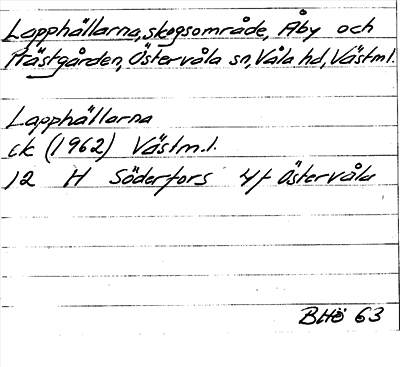 Lapphällarna, skogsområde, Åby och
Prästgården, Östervåla sn, Våla hd, Västml.
Lapphällarna
ek (1962) Västm.l.
12 H Söderfors 4f Östervåla
BHÖ 63